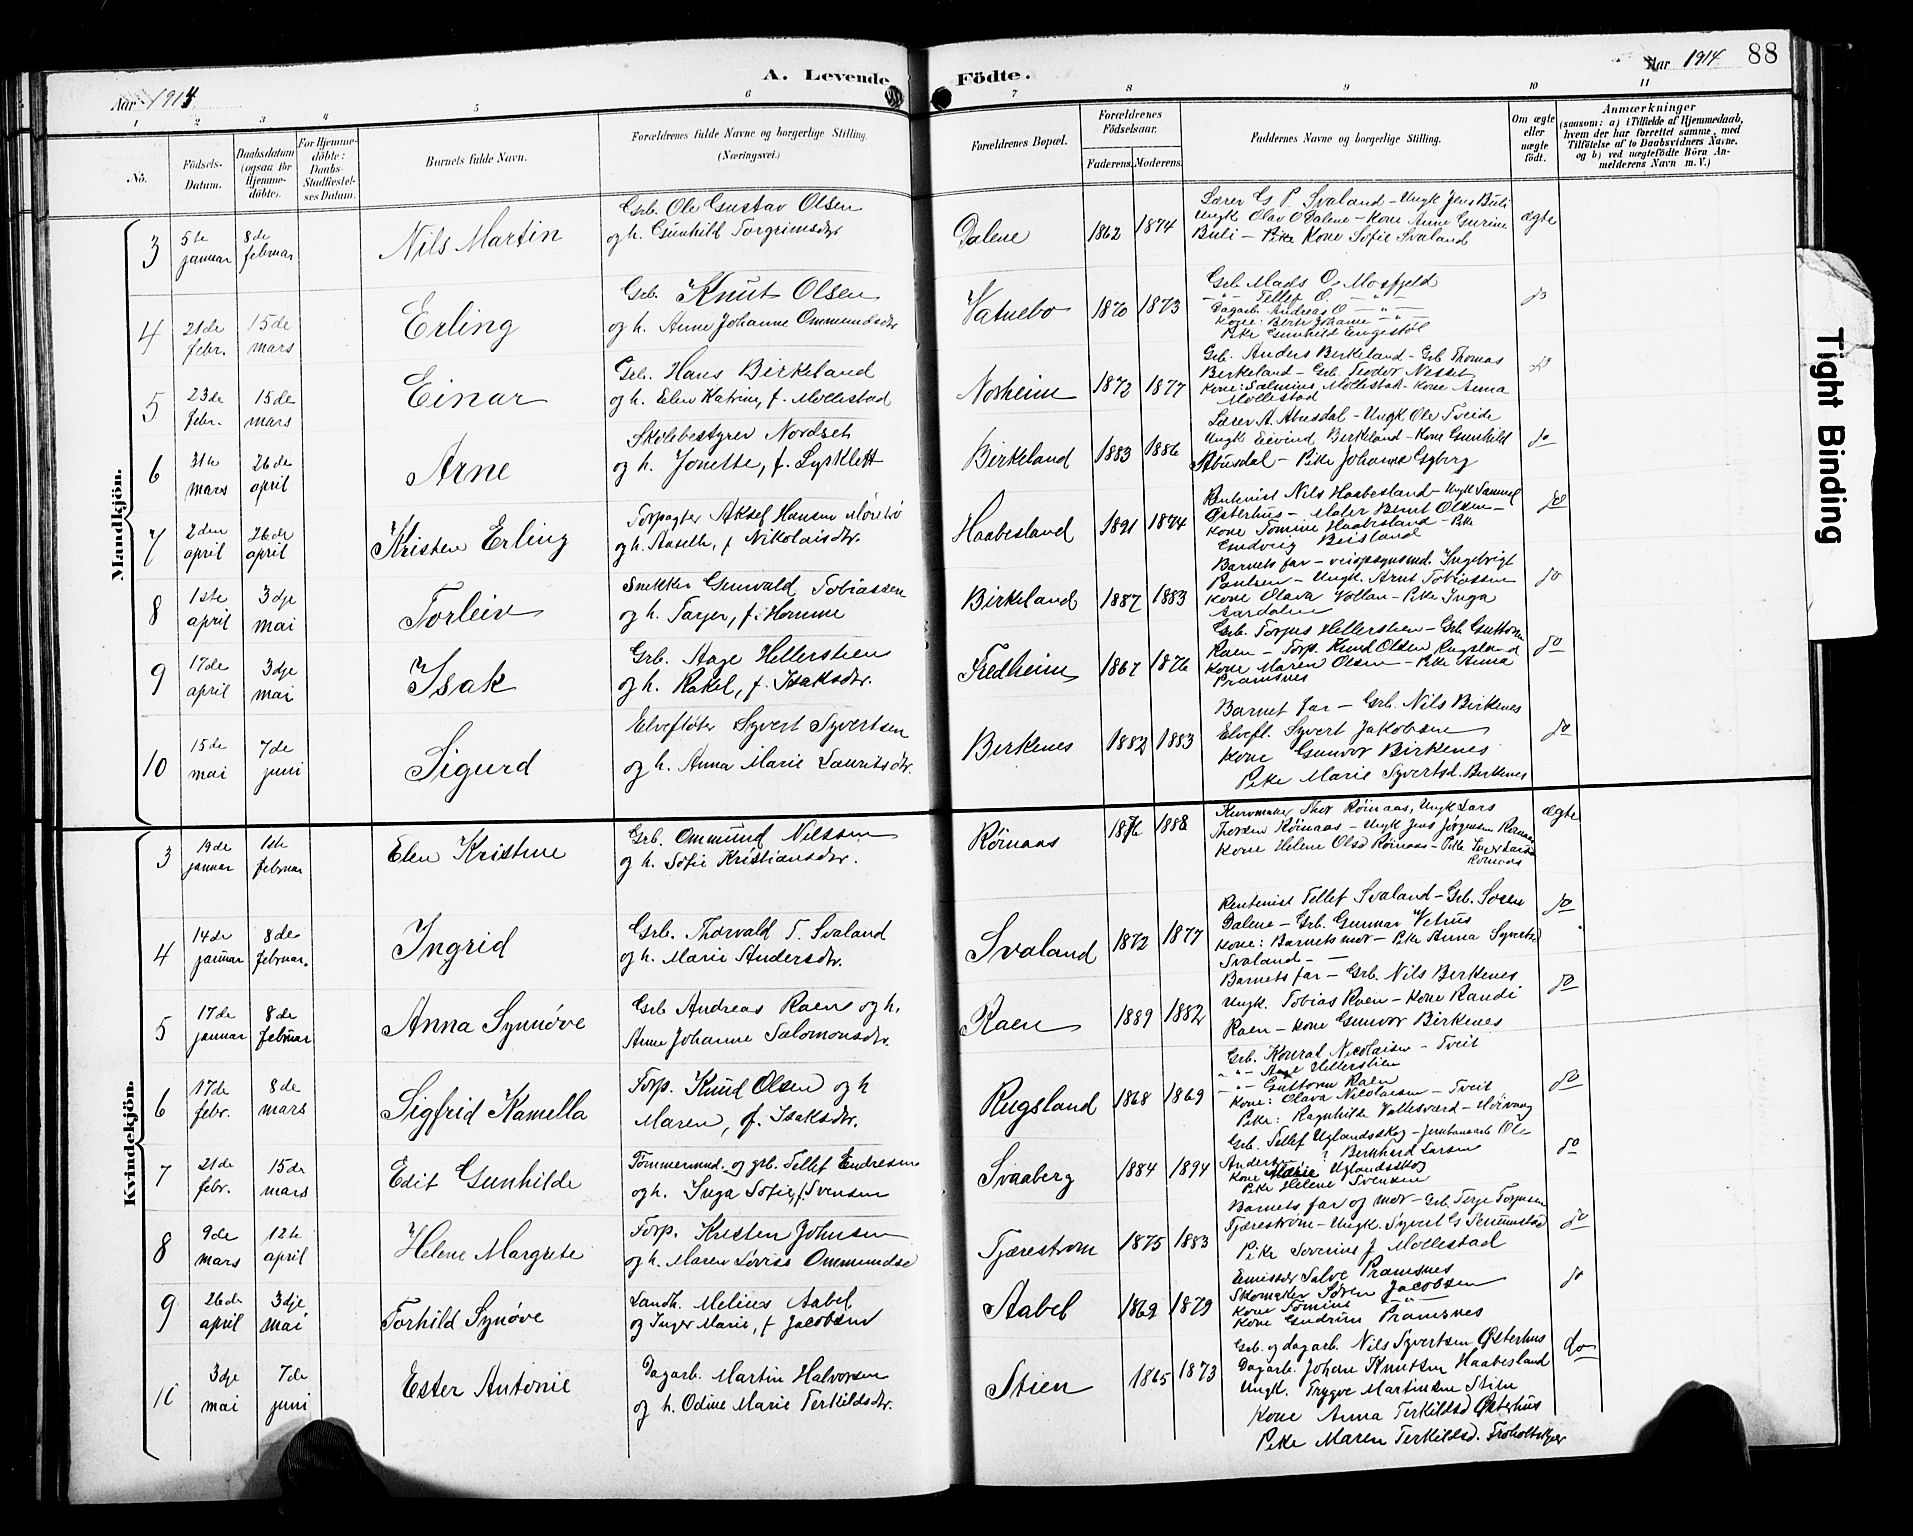 A. Levende Födte.
Aar 1914
Aar 1914
88
1 2 3 4 5 6 7 8 9 10 11
No.
Födsels-Datum.
Daabsdatum (ogsaa for Hjemme-döbte).
For Hjemme-döbte: Daabs-Stadfæstel-ses Datum.
Barnets fulde Navn.
Forældrenes fulde Navne og borgerlige Stilling. (Næringsvei.)
Forældrenes Bopæl.
Forældrenes Födselsaar.
Faderens. Moderens.
Faddernes Navne og borgerlige Stilling.
Om ægte eller uægte födt.
Anmærkninger
(saasom: a) i Tilfælde af Hjemmedaab, hvem der har forrettet samme, med Tilföielse af to Daabsvidners Navne, og b) ved uægtefödte Börn An-melderens Navn m. V.)
Mandkjön.
3 5te januar 8de februar Nils Martin Grb. Ole Gustav Olsen og h. Gunhild Torgrimsdtr Dalene 1862 1874 Lærer G P. Svaland – Ungk Jens Buli
Ungk Olav O Dalene – Kone Anne Gurine
Buli – Pike Kone Sofie Svaland ægte
4 21de febr. 15de mars Erling Grb. Knut Olsen og h. Anne Johanne Ommundsdtr Vatnebo 1870 1873 Grb. Mads O. Mosfjeld
–"– Tellef O. –"–
Dagarb. Andreas O –"–
Kone: Berte Johanne –"–
Pike Gunhild Engestøl do
5 23de febr. 15de mars Einar Grb. Hans Birkeland og h. Elen Katrine, f. Mollestad Norheim 1872 1877 Grb. Anders Birkeland – Grb Thomas
Birkeland – Grb. Teodor Nesset
Kone: Salmine Mollestad – Kone Anna
Mollestad do
6 31te mars 26de april Arne Skolebestyrer Nordset og h. Jonette, f. Lysklett Birkeland 1883 1886 Lærer A. Abusdal – Ungk Ole Tveide
Ungk Eivind Birkeland – Kone Gunhild
Abusdal – Pike Johanna Egberg do
7 2den april 26de april Kristen Erling Forpagter Aksel Hansen og h. Aaselle, f Nikolaisdtr. Haabesland 1891 1874 Rentenist Nils Haabesland – Ungk Samuel
Østerhus – Maler Bernt Olsen –
Kone Tomine Haabesland – Pike
Gudveig Beisland do
8 1ste april 3dje mai Torleiv Snekker Gunvald Tobiassen og h. Tarjer, f. Homme Birkeland 1887 1883 Barnets far – veiopsynsmd. Ingebrigt
Paulsen – Ungk. Arnt Tobiassen
Kone Olava Vollan – Pike Inga
Aardalen do
9 17de april 3dje mai Isak Grb. Aage Hellerstien og h. Rakel, f. Isaksdtr. Fredheim 1867 1876 Grb. Torjus Hellerstien – Grb Guttorm
Raen – Torp. Knud Olsen Rugsland
Kone Maren Olsen – Pike Anna
Pramsnes do
10 15de mai 7de juni Sigurd Elvefløter Syvert Syvertsen og h. Anna Marie Lauritsdtr. Birkenes 1882 1883 Barnet far – Grb. Nils Birkenes
Elvefl. Syvert Jakobsen
Kone Gunvor Birkenes
Pike Marie Syvertsd. Birkenes do
Kvindekjön.
3 19de januar 1ste februar Elen Kristine Grb. Ommund Nilssen og h. Sofie Kristiansdtr. Rømaas 1876 1888 Kurvmaker Thor Rømaas, Ungk Lars
Thorsen Rømaas – Ungk Jens Jørgensen Rømaas
Kone Helene Olsd Rømaas – Pike Inger Larsd
Rømaas ægte
4 14de januar 8de februar. Ingrid Grb. Thorvald T. Svaland og h. Marie Andersdtr. Svaland 1872 1877 Rentenist Tellef Svaland – Grb. Soren
Dalene – Grb. Gunnar Vetrus
Kone: Barnets mor – Pike Anna Syvertsd
Svaland – – do
5 17de januar 8de februar Anna Synnøve Grb Andreas Raen og h. Anne Johanne Salomonsdtr. Raen 1889 1882 Barnets far – Grb. Nils Birkenes
Ungk. Tobias Raen – Kone Randi
Raen – Kone Gunvor Birkenes do
6 17de febr. 8de mars Sigfrid Kamella Torp. Knud Olsen og h Maren, f. Isaksdtr. Rugsland 1868 1869 Grb. Konrad Nicolaisen – Tveit
–"– Aage Hellerstien
–"– Guttorm Raen
Kone: Olava Nicolaisen – Tveit
Pike: Ragnhilde Vallesværd – do
7 21de febr. 15de mars Edit Gunhilde Tømmermnd. og grb. Tellef Endresen og h. Inga Sofie, f Svensen Svaaberg 1884 1894 Grb. Tellef Uglandsskog – Jernbanearb Ole
Andersen, Bernhard Larsen
Kone Marie Uglandsskog
Pike Helene Svensen do
8 9de mars 12te april Helene Margrete Torp. Kristen Johnsen og h. Maren Lovise Ommundsd Tjærestrøm 1875 1883 Barnets far og mor – Grb. Terje Torjusen
Tjærestrøm – Ungk. Syvert G Senumstad
Pike Severine J Mollestad do
9 26de april 3dje mai Torhild Synøve Landh. Melius Aabel og Inger Marie, f Jacobsen Aabel 1869 1879 Emissær Salve Pramsnes
Skomaker Søren Jacobsen
Kone Tomine –"–
Kone Gudrun Pramsnes do
10 3dje mai 7de juni Ester Antonie Dagarb. Martin Halvorsen og h. Odine Marie Terkildsdtr. Stien 1865 1873 Grb. og dagarb. Nils Syvertsen Østerhus
Dagarb. Johan Knutsen Haabesland
Ungk. Trygve Martinsen Stien
Kone Anna Terkildsd Østerhus
Pike Maren Terkildsd. do
Tight Binding